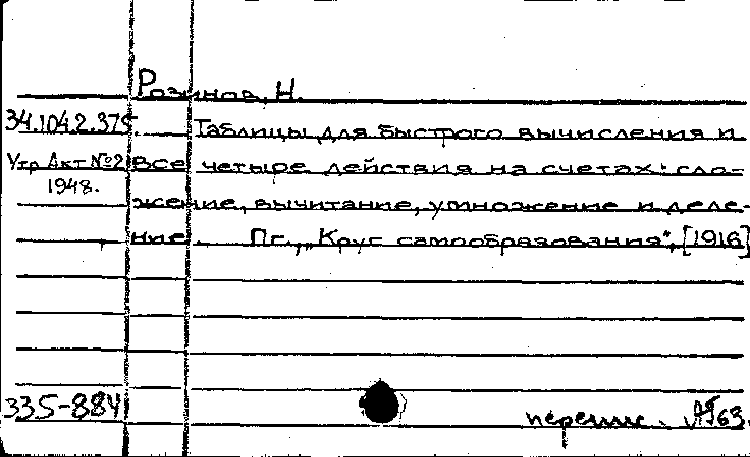 Розинов, Н.
34.104.2.375. Таблицы для быстрого вычисления и
Утр. Акт №2 все четыре действия на счетах: сло-
1948. жение, вычитание, умножение и деле-
ние. Пг., „Круг самообразования", [1916]
335-884
перепис. 63.